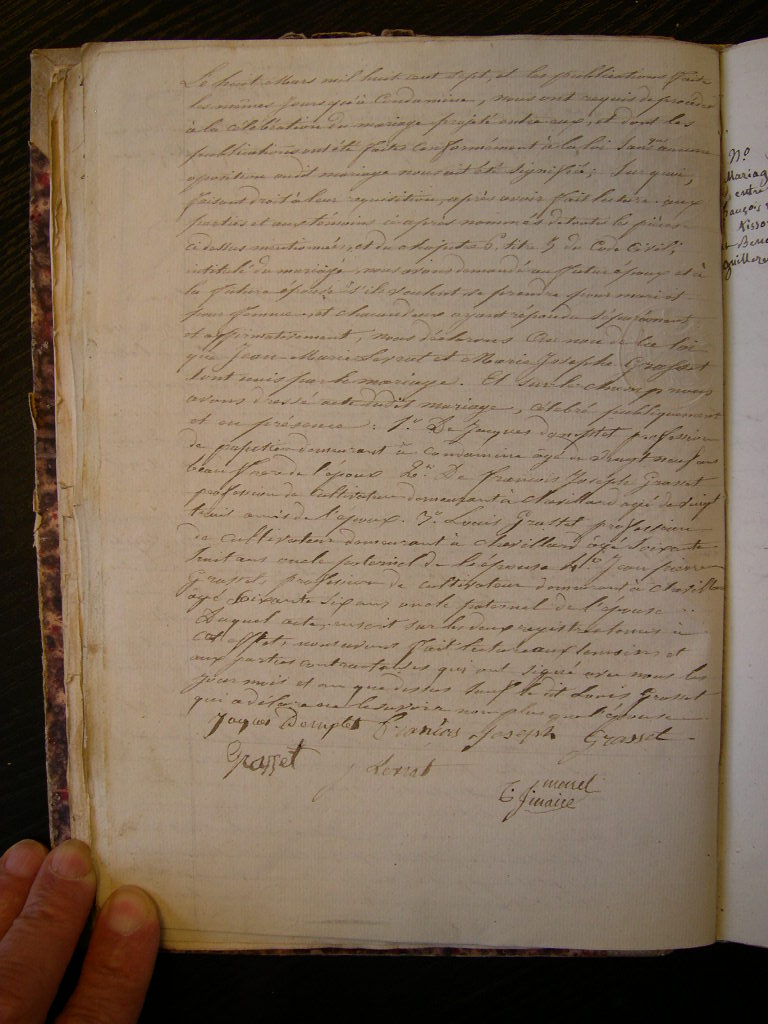 Le huit Mars mil huit cent sept, et les publications faite
les mêmes jours qu'à Condamine, nous ont requis de procéder
à la célébration du mariage projeté entre eux, et dont les
publications ont été faites conformément à la loi sans qu'aucune
opposition audit mariage nous ait été signifiée; sur quoi,
faisant droit à leur requisition, après avoir fait lecture aux
parties et aux témoins ci après nommés de toutes les pièces
ci dessus mentionnées, et du chapitre 6e titre 5 du Code Civil,
intitulé du mariage, nous avons demandé au futur époux et à
la future épouse s'ils veulent se prendre pour mari et
pour femme, et chacun d'eux ayant répondu séparément
et affirmativement, nous déclarons au nom de la loi
que Jean Marie Serrat et Marie Josephe Grasset
sont unis par le mariage. Et sur le champ nous
avons dressé acte dudit mariage, célébré publiquement
et en présence: 1o De Jacques profession
de demeurant à Condamine agé de vingt neuf ans
beau frère de l'epoux 2o De francois Joseph Grasset
profession de cultivateur demeurant à Chevillard agé de vingt
trois amis de l'époux. 3o Louis Grasset profession
de cultivateur demeurant à Chevillard agé soixante
huit ans oncle paternel de l'epouse 4o Jean pierre
Grasset, profession de cultivateur demeurant à Chevillard
agé soixante six ans oncle paternel de l'epouse
Duquel acte, inscrit sur les deux registres tenus à
cet effet, nous avons fait lecture aux temoins et
aux parties contractantes qui ont signé avec nous les
jour mois et an que dessus sauf le dit Louis Grasset
qui a déclaré ne le savoir non plus que l'épouse
Jaques francois Joseph Grasset
Grasset
morel
maire
No
Mariage
entre
françois